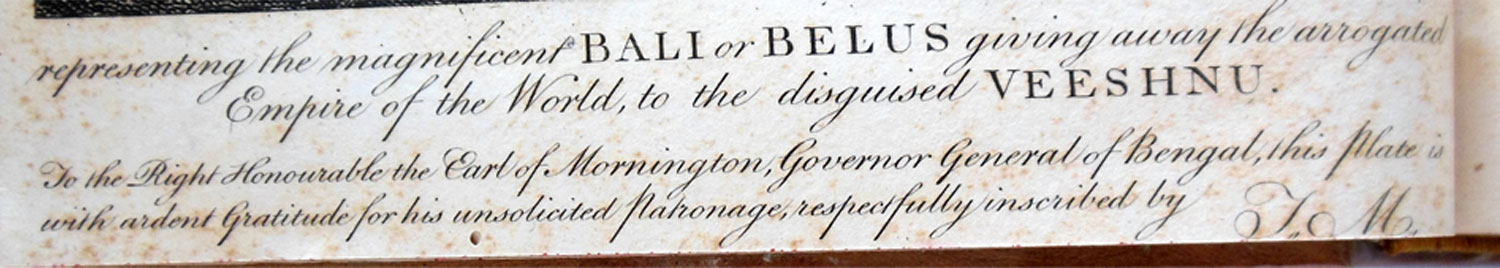 representing the magnificent BALI or BELUS giving away the arrogated
Empire of the World, to the disguised VEESHNU.
To the Right Honourable the Earl of Mornington, Governor General of Bengal, this Plate is
with ardent Gratitude for his unsolicited Patronage, respectfully inscribed by T. M.